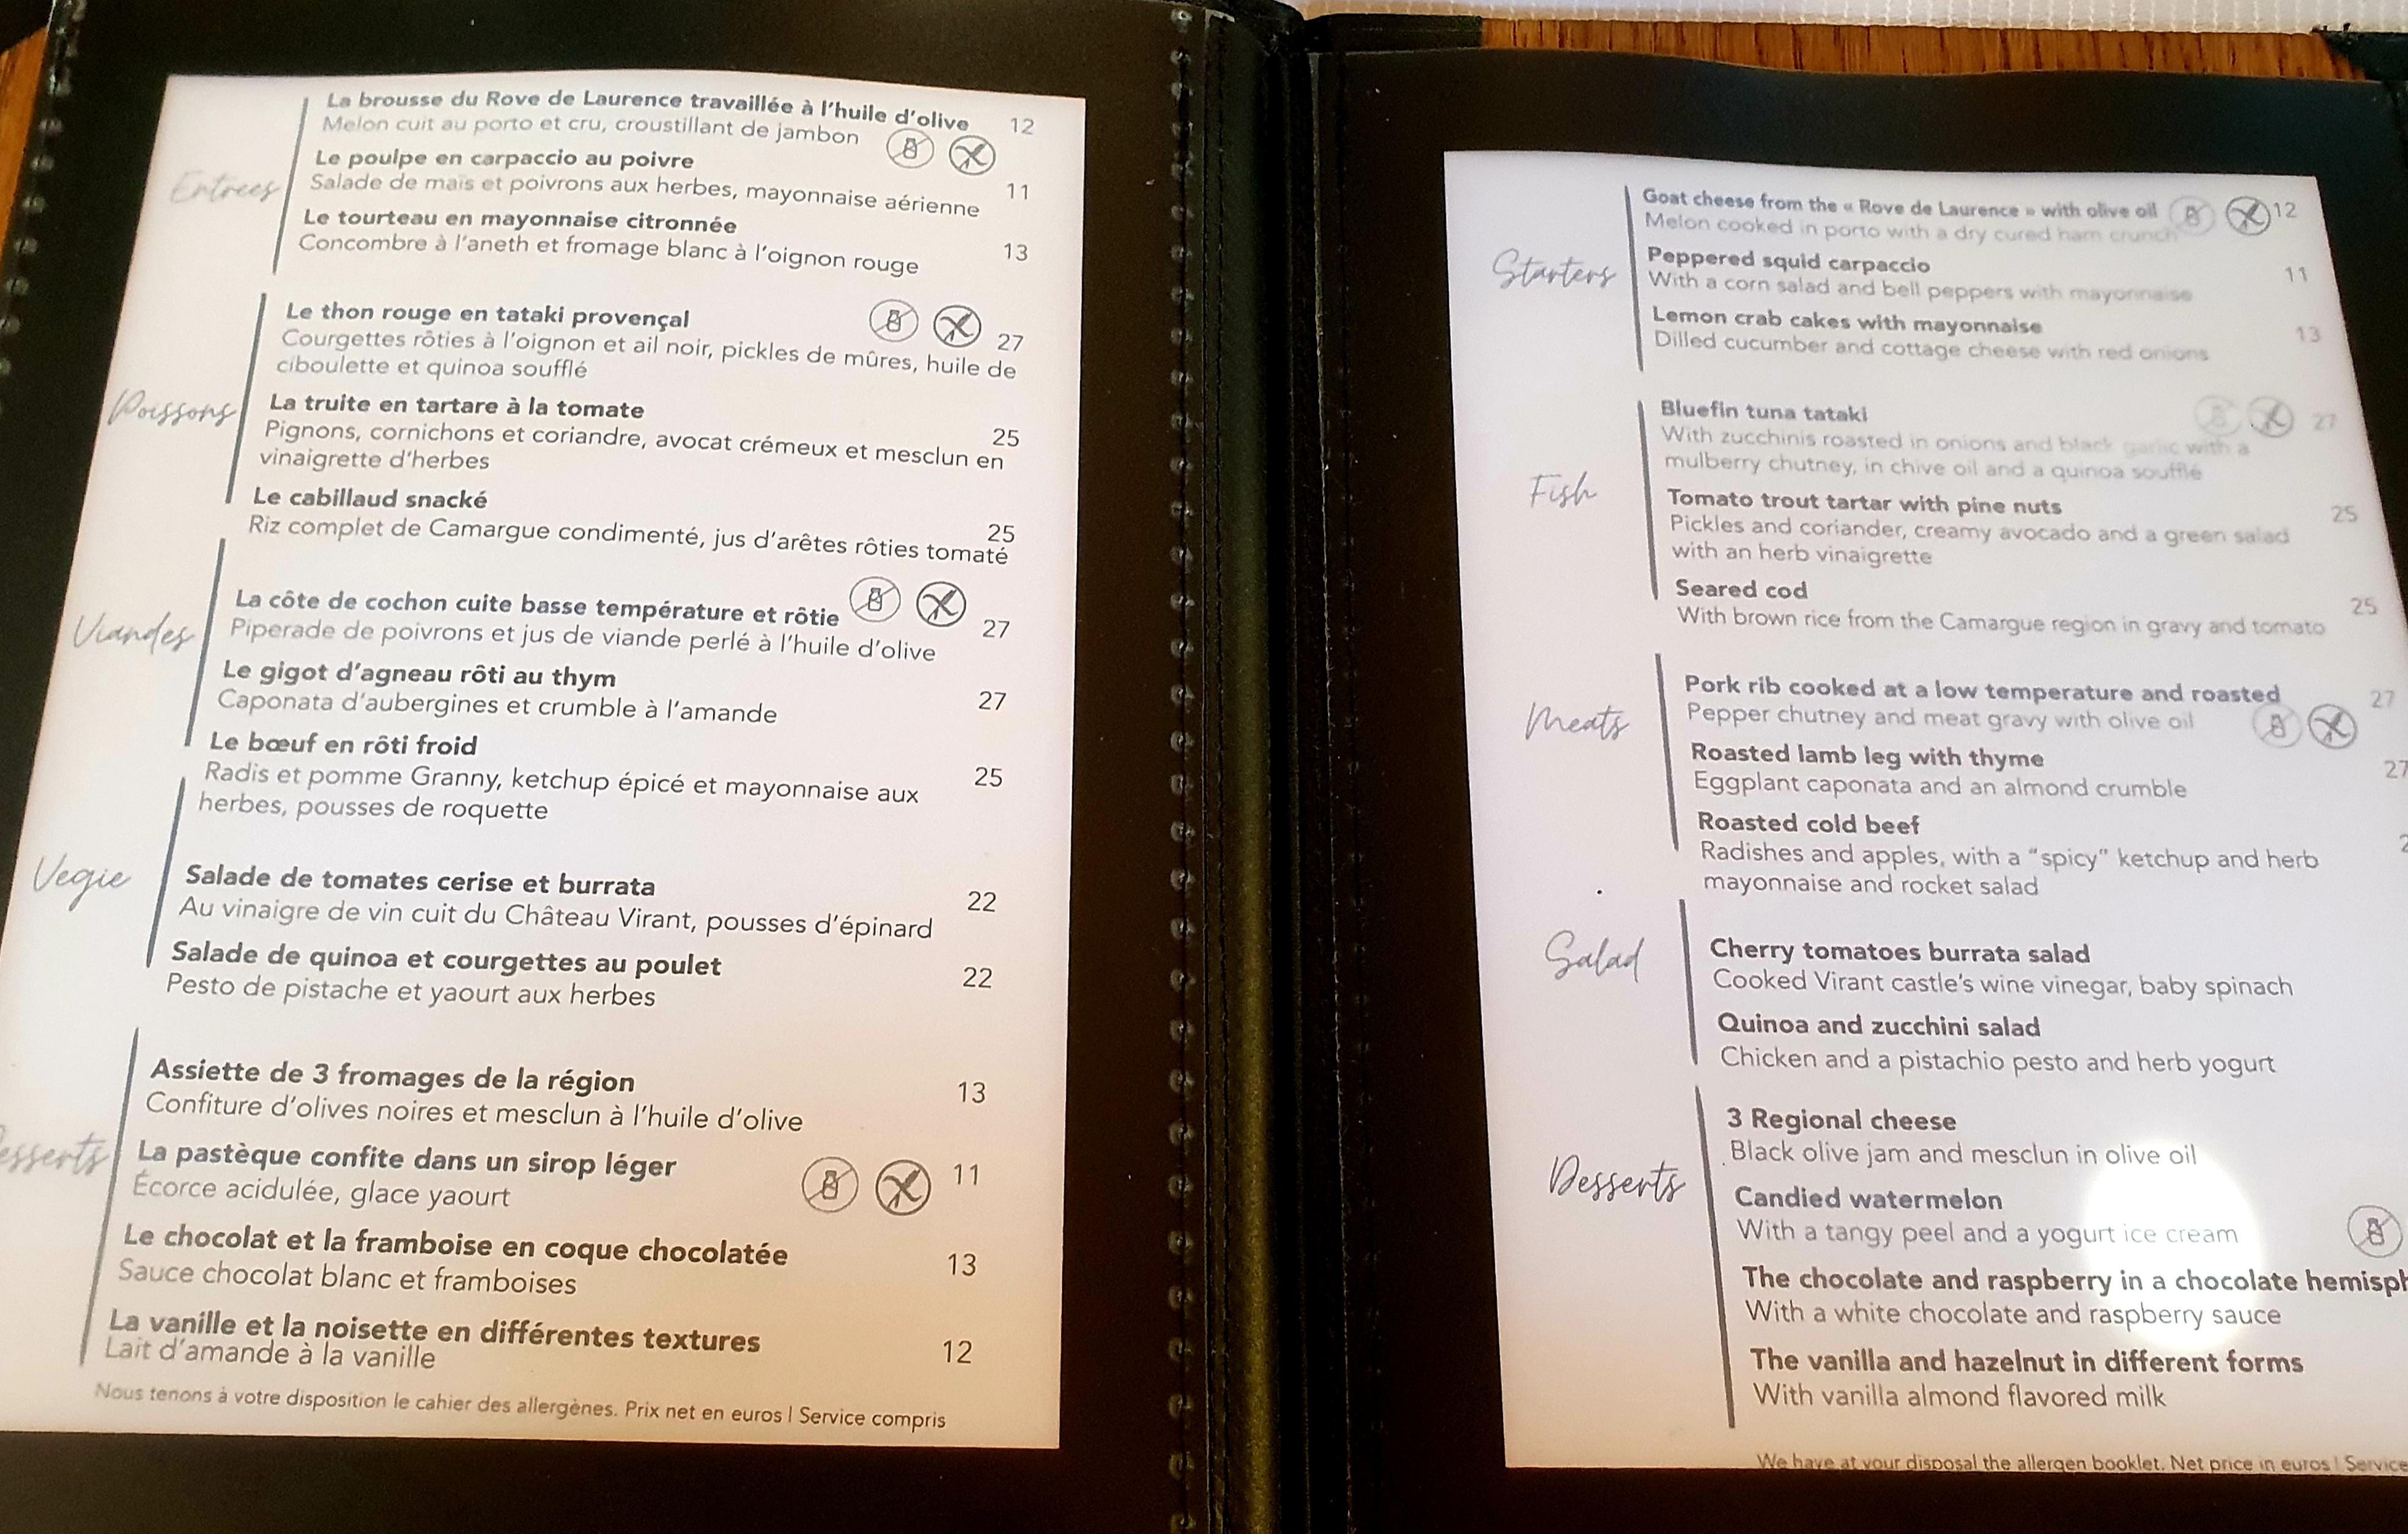 Entrées
La brousse du Rove de Laurence travaillée à l'huile d'olive 12
Melon cuit au porto et cru, croustillant de jambon
Le poulpe en carpaccio au poivre
Salade de maïs et poivrons aux herbes, mayonnaise aérienne 11
Le tourteau en mayonnaise citronnée
Concombre à l'aneth et fromage blanc à l'oignon rouge 13
Poissons
Le thon rouge en tataki provençal 27
Courgettes rôties à l'oignon et ail noir, pickles de mûres, huile de
ciboulette et quinoa soufflé
La truite en tartare à la tomate 25
Pignons, cornichons et coriandre, avocat crémeux et mesclun en
vinaigrette d'herbes
Le cabillaud snacké 25
Riz complet de Camargue condimenté, jus d'arêtes rôties tomaté
Viandes
La côte de cochon cuite basse température et rôtie 27
Piperade de poivrons et jus de viande perlé à l'huile d'olive
Le gigot d'agneau rôti au thym
Caponata d'aubergines et crumble à l'amande 27
Le bœuf en rôti froid
Radis et pomme Granny, ketchup épicé et mayonnaise aux 25
herbes, pousses de roquette
Vegie
Salade de tomates cerise et burrata 22
Au vinaigre de vin cuit du Château Virant, pousses d'épinard
Salade de quinoa et courgettes au poulet 22
Pesto de pistache et yaourt aux herbes
esserts
Assiette de 3 fromages de la région 13
Confiture d'olives noires et mesclun à l'huile d'olive
La pastèque confite dans un sirop léger 11
Écorce acidulée, glace yaourt
Le chocolat et la framboise en coque chocolatée 13
Sauce chocolat blanc et framboises
La vanille et la noisette en différentes textures 12
Lait d'amande à la vanille
Nous tenons à votre disposition le cahier des allergènes. Prix net en euros | Service compris
Starters
Goat cheese from the « Rove de Laurence » with olive oil 12
Melon cooked in porto with a dry cured ham crunch
Peppered squid carpaccio 11
With a corn salad and bell peppers with mayonnaise
Lemon crab cakes with mayonnaise 13
Dilled cucumber and cottage cheese with red onions
Fish
Bluefin tuna tataki 27
With zucchinis roasted in onions and black garlic with a
mulberry chutney, in chive oil and a quinoa soufflé
Tomato trout tartar with pine nuts 25
Pickles and coriander, creamy avocado and a green salad
with an herb vinaigrette
Seared cod 25
With brown rice from the Camargue region in gravy and tomato
Meats
Pork rib cooked at a low temperature and roasted 27
Pepper chutney and meat gravy with olive oil
Roasted lamb leg with thyme 27
Eggplant caponata and an almond crumble
Roasted cold beef 2
Radishes and apples, with a "spicy" ketchup and herb
mayonnaise and rocket salad
Salad
Cherry tomatoes burrata salad
Cooked Virant castle's wine vinegar, baby spinach
Quinoa and zucchini salad
Chicken and a pistachio pesto and herb yogurt
Desserts
3 Regional cheese
Black olive jam and mesclun in olive oil
Candied watermelon
With a tangy peel and a yogurt ice cream
The chocolate and raspberry in a chocolate hemisph
With a white chocolate and raspberry sauce
The vanilla and hazelnut in different forms
With vanilla almond flavored milk
We have at your disposal the allergen booklet. Net price in euros | Service